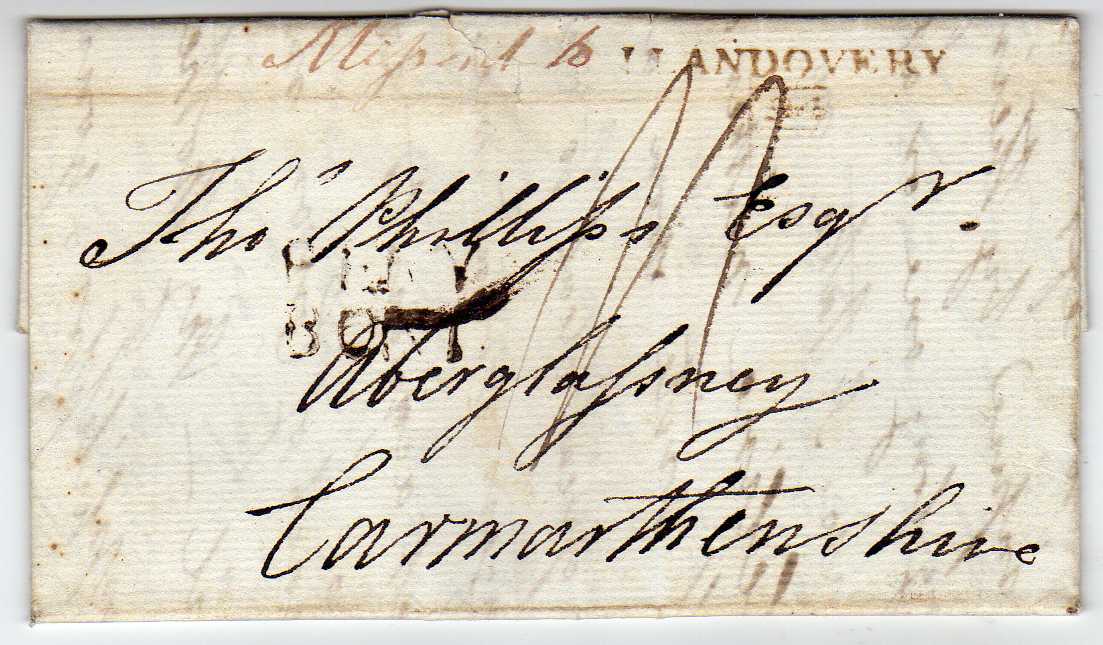 Missent to LLANDOVERY
Tho.s Phillips Esq.r
PENY
BONT
Aberglasney
Carmarthenshire